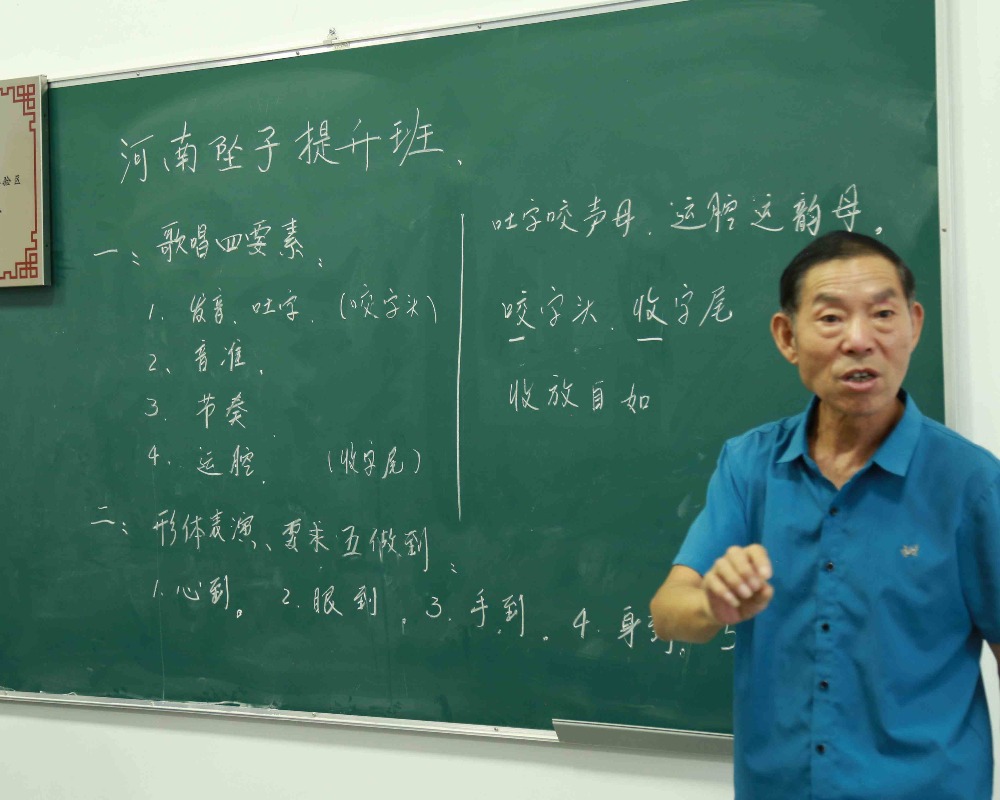 河南坠子提升班、
一：歌唱四要素：
1. 发音、吐字.（咬字头）
2、音准.
3. 节奏
4. 运腔.（收字尾）
二：形体表演、要求五做到：
1. 心到。2. 眼到。3. 手到。4. 身到。5
吐字咬声母、运腔运韵母。
咬字头、收字尾
收放自如
验区